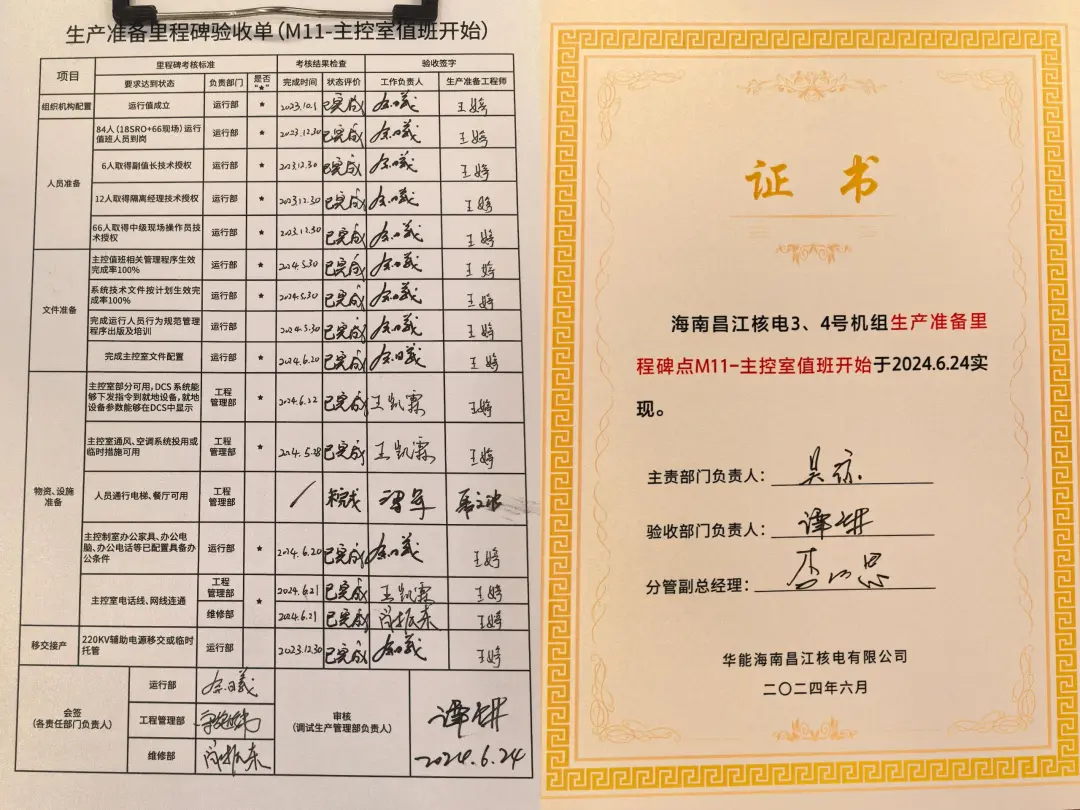 生产准备里程碑验收单(M11-主控室值班开始)
项目 里程碑考核标准 考核结果检查 验收签字
要求达到状态 负责部门 是否"*" 完成时间 状态评价 工作负责人 生产准备工程师
组织机构配置 运行值成立 运行部 * 2023.10.1 已完成 王婷
人员准备
84人(18SRO+66现场)运行
值班人员到岗 运行部 * 2023.12.30 已完成 王婷
6人取得副值长技术授权 运行部 * 2023.12.30 已完成 王婷
12人取得隔离经理技术授权 运行部 * 2023.12.30 已完成 王婷
66人取得中级现场操作员技
术授权 运行部 * 2023.12.30 已完成 王婷
文件准备
主控值班相关管理程序生效
完成率100% 运行部 * 2024.5.30 已完成 王婷
系统技术文件按计划生效完
成率100% 运行部 * 2024.5.30 已完成 王婷
完成运行人员行为规范管理
程序出版及培训 运行部 2024.5.30 已完成 王婷
完成主控室文件配置 运行部 * 2024.6.20 已完成 王婷
物资、设施
准备
主控室部分可用,DCS系统能
够下发指令到就地设备,就地
设备参数能够在DCS中显示
工程
管理部 * 2024.6.22 已完成 王凯霖 王婷
主控室通风、空调系统投用或
临时措施可用
工程
管理部 * 2024.5.28 已完成 王凯霖 王婷
人员通行电梯、餐厅可用
工程
管理部 / 未完成
主控制室办公家具、办公电
脑、办公电话等已配置具备办
公条件 运行部 * 2024.6.20 已完成 王婷
主控室电话线、网线连通
工程
管理部 * 2024.6.21 已完成 王凯霖 王婷
维修部 2024.6.21 已完成 王婷
移交接产 220KV辅助电源移交或临时
托管 运行部 2023.12.30 已完成 王婷
会签
(各责任部门负责人)
运行部
工程管理部
维修部
审核
(调试生产管理部负责人)
2024.6.24
证书
海南昌江核电3、4号机组生产准备里
程碑点M11-主控室值班开始于2024.6.24实
现。
主责部门负责人:
验收部门负责人:
分管副总经理:
华能海南昌江核电有限公司
二〇二四年六月